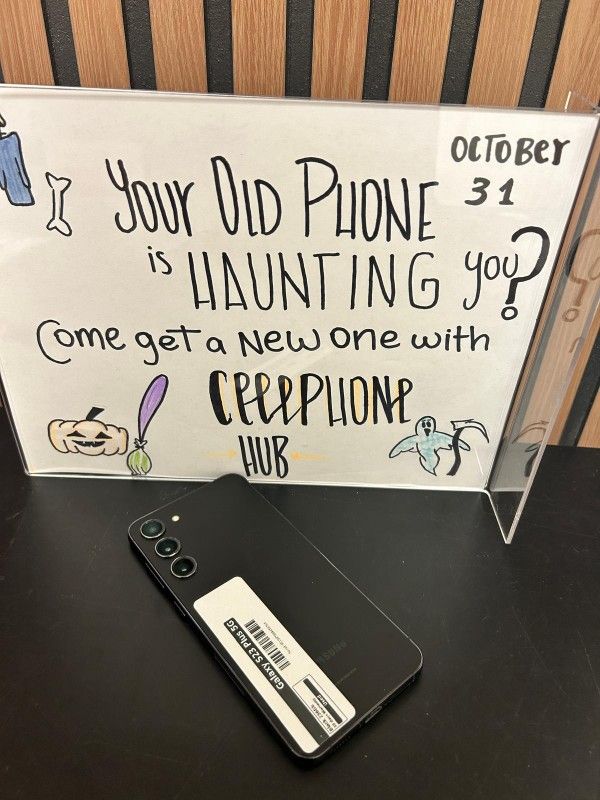 OCTOBER
31
Your Old Phone
is HAUNTING you?
Come get a New one with
CELLPHONE
HUB
Galaxy S23 Plus 5G
SAMSUNG